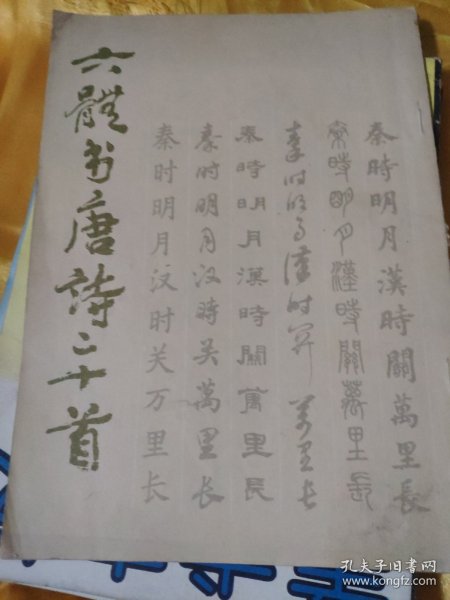 六體书唐詩二十首
秦時明月漢時關萬里長
秦時明月漢時關萬里長
秦时明月漢时關萬里长
秦時明月漢時關萬里長
秦时明月汉時关萬里长
秦时明月汉时关万里长
孔夫子旧书网
www.kongfz.com